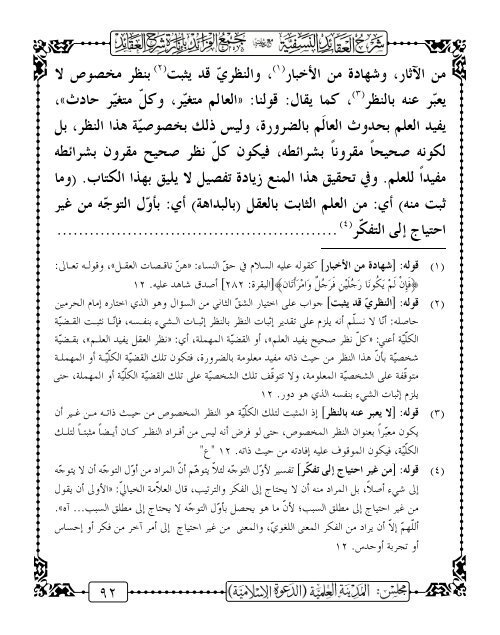 شرح العقائد النسفية مع جمع الفرائد بإنارة شرح العقائد
من الآثار، وشهادة من الأخبار(١)، والنظريّ قد يثبت(٢) بنظر مخصوص لا
يعبّر عنه بالنظر(٣)، كما يقال: قولنا: «العالم متغيّر، وكلّ متغيّر حادث»،
يفيد العلم بحدوث العالَم بالضرورة، وليس ذلك بخصوصيّة هذا النظر، بل
لكونه صحيحاً مقروناً بشرائطه، فيكون كلّ نظر صحيح مقرون بشرائطه
مفيداً للعلم. وفي تحقيق هذا المنع زيادة تفصيل لا يليق بهذا الكتاب. (وما
ثبت منه) أي: من العلم الثابت بالعقل (بالبداهة) أي: بأوّل التوجّه من غير
احتياج إلى التفكّر(٤)................................................
(١) قوله: [شهادة من الأخبار] كقوله عليه السلام في حقّ النساء: «هنّ ناقصات العقل»، وقوله تعالى:
﴿فَإِنْ لَمْ يَكُونَا رَجُلَيْنِ فَرَجُلٌ وَامْرَأَتَانِ﴾[البقرة: ٢٨٢] أصدق شاهد عليه. ١٢
(٢) قوله: [النظريّ قد يثبت] جواب على اختيار الشقّ الثاني من السؤال وهو الذي اختاره إمام الحرمين
حاصله: أنّا لا نسلّم أنه يلزم على تقدير إثبات النظر بالنظر إثبات الشيء بنفسه، فإنّا نثبت القضيّة
الكلّيّة أعني: «كلّ نظر صحيح يفيد العلم»، أو القضية المهملة، أي: «نظر العقل يفيد العلم»، بقضيّة
شخصيّة بأنّ هذا النظر من حيث ذاته مفيد معلومة بالضرورة، فتكون تلك القضيّة الكلّيّة أو المهملة
متوقّفة على الشخصيّة المعلومة، ولا تتوقّف تلك الشخصيّة على تلك القضيّة الكلّيّة أو المهملة، حتى
يلزم إثبات الشيء بنفسه الذي هو دور. ١٢
(٣) قوله: [لا يعبر عنه بالنظر] إذ المثبت لتلك الكلّيّة هو النظر المخصوص من حيث ذاته من غير أن
يكون معبّراً بعنوان النظر المخصوص، حتى لو فرض أنه ليس من أفراد النظر كان أيضاً مثبتاً لتلك
الكلّيّة، فيكون الموقوف عليه إفادته من حيث ذاته. ١٢ "ع"
(٤) قوله: [من غير احتياج إلى تفكّر] تفسير لأوّل التوجّه لئلاّ يتوهّم أنّ المراد من أوّل التوجّه أن لا يتوجّه
إلى شيء أصلاً، بل المراد منه أن لا يحتاج إلى الفكر والترتيب، قال العلاّمة الخياليّ: «الأولى أن يقول
من غير احتياج إلى مطلق السبب؛ لأنّ ما هو يحصل بأوّل التوجّه لا يحتاج إلى مطلق السبب... آه».
أللهمّ إلاّ أن يراد من الفكر المعنى اللغويّ، والمعنى من غير احتياج إلى أمر آخر من فكر أو إحساس
أو تجربة أوحدس. ١٢
مجلس: المدينة العلمية (الدعوة الإسلامية)
٩٢